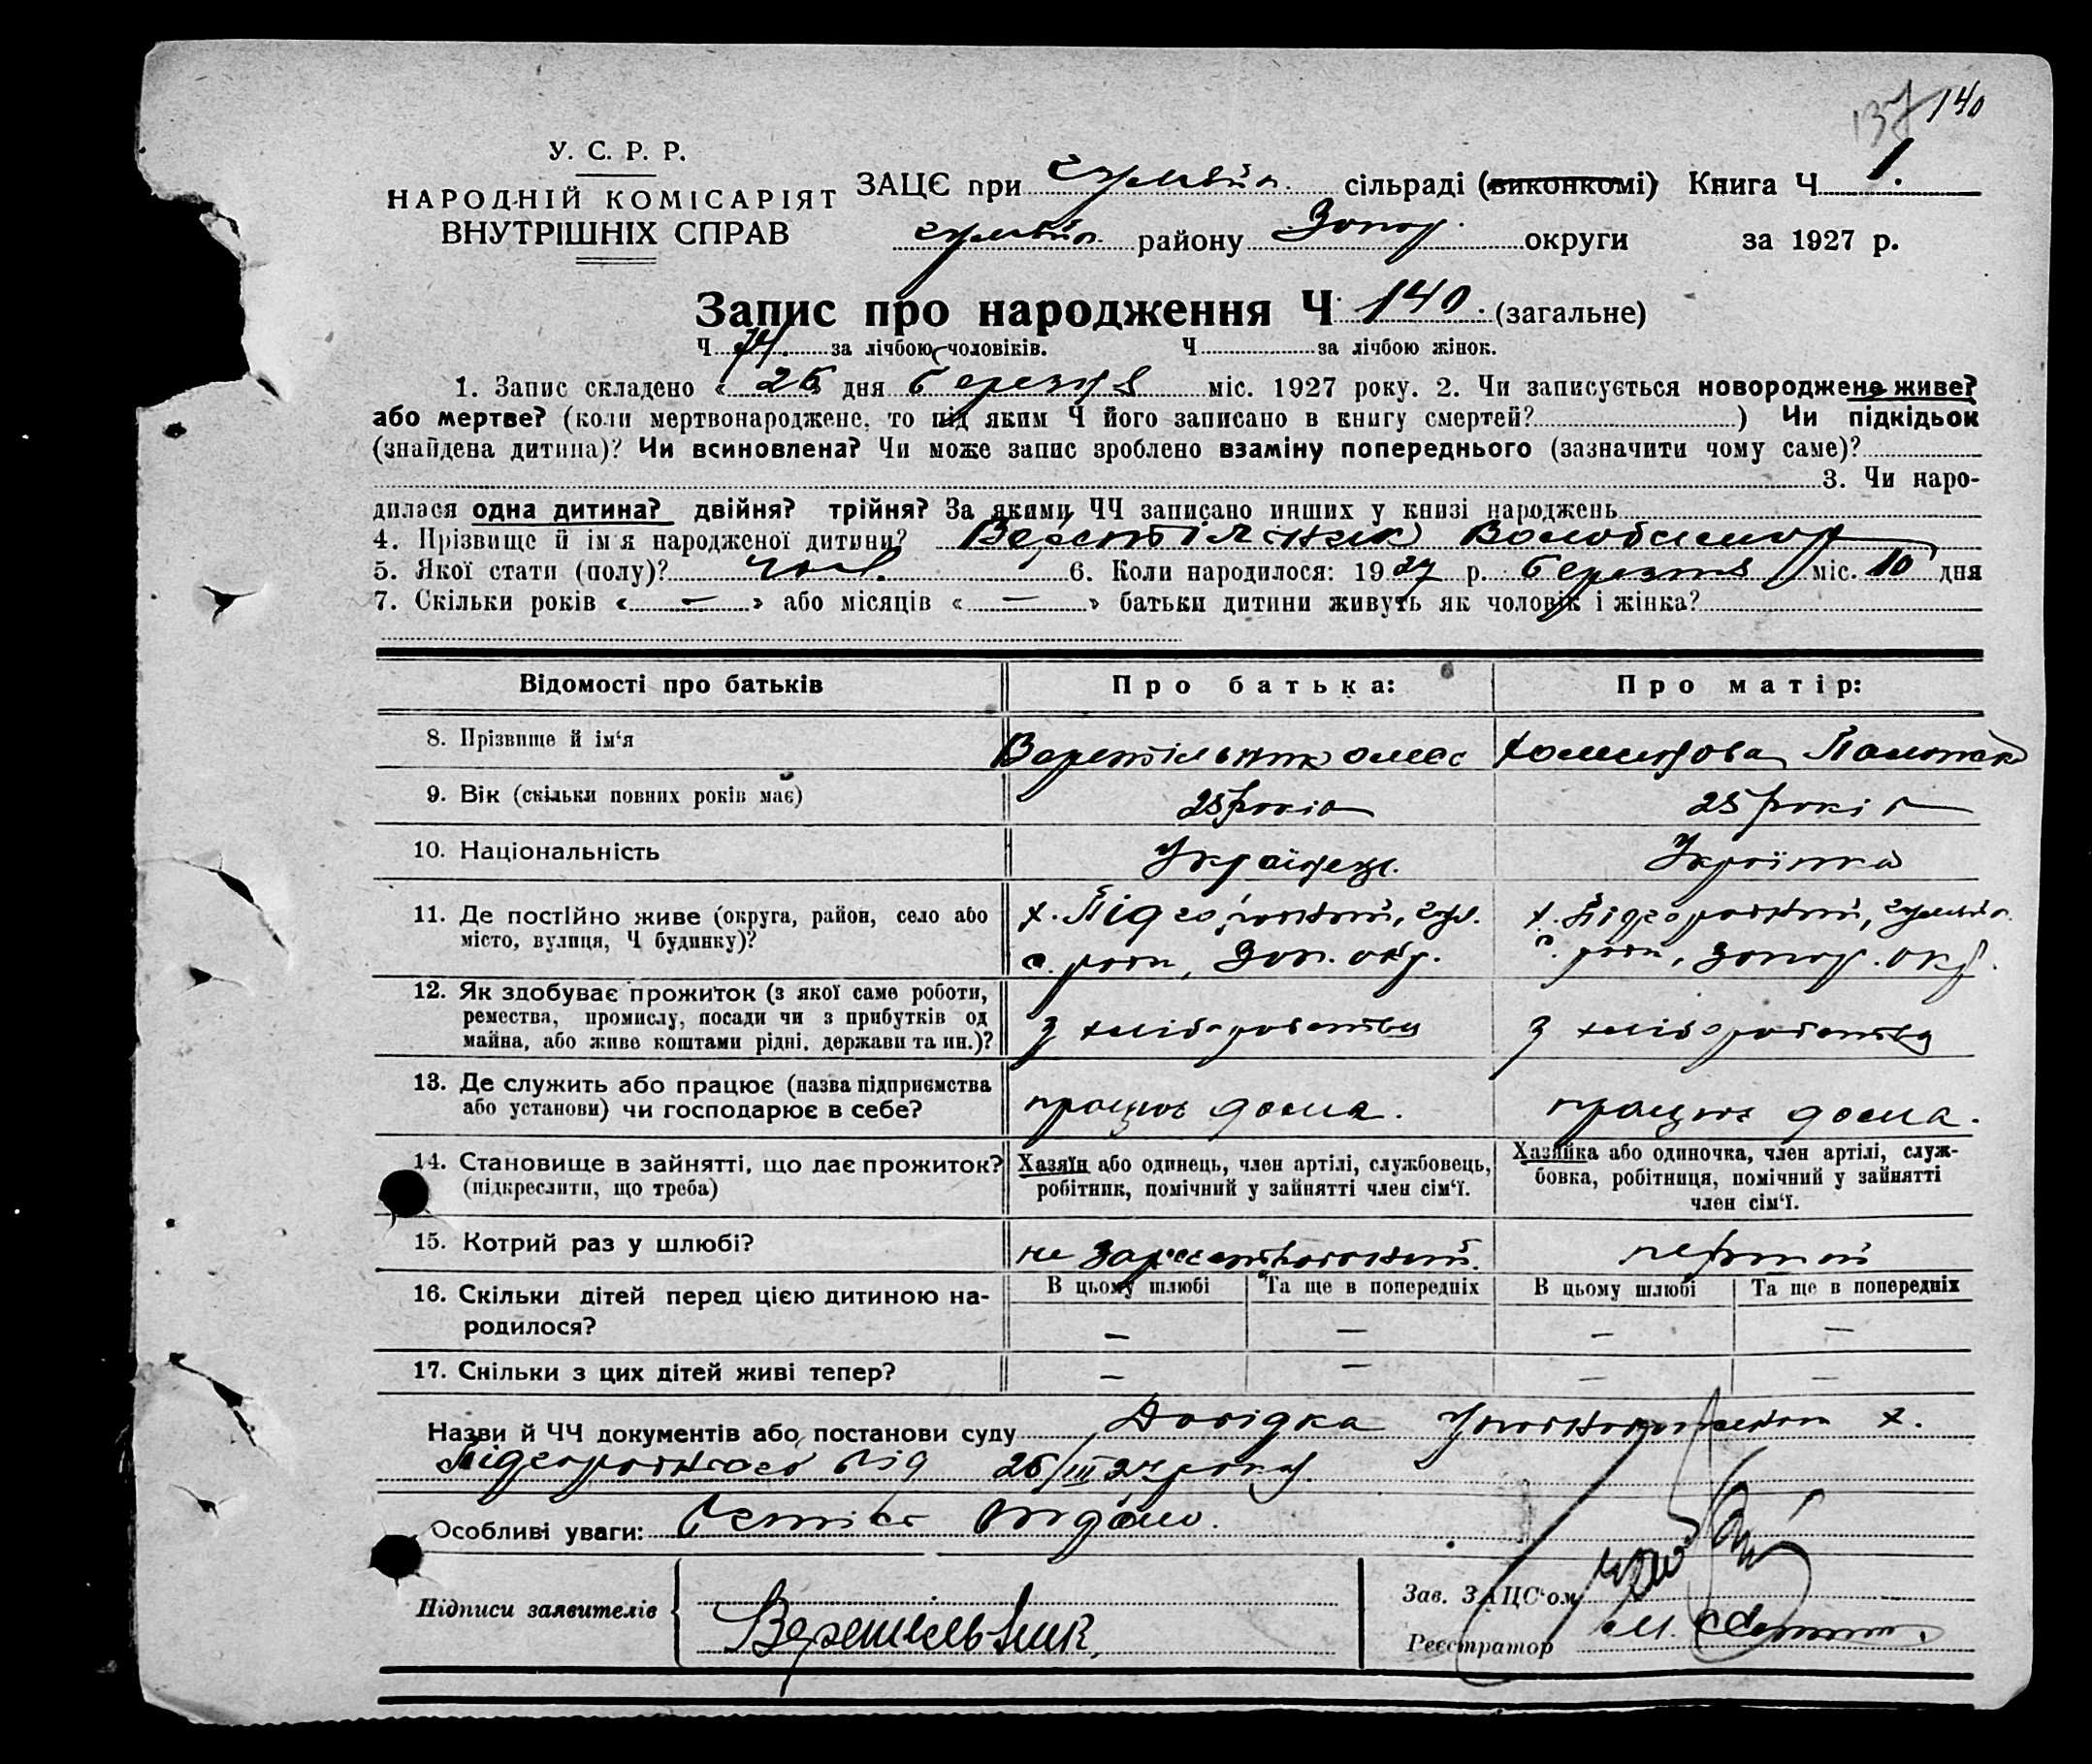 137 140
У. С. Р. Р.
НАРОДНІЙ КОМІСАРІЯТ
ВНУТРІШНІХ СПРАВ
ЗАЦЄ при гуляйп. сільраді (виконкомі) Книга Ч 1.
гуляйп. району Запор. округи за 1927 р.
Запис про народження Ч 140. (загальне)
Ч 74. за лічбою чоловіків. Ч за лічбою жінок.
1. Запис складено « 26 дня березня міс. 1927 року. 2. Чи записується новороджене живе?
або мертве? (коли мертвонароджене, то під яким Ч його записано в книгу смертей? ) Чи підкідьок
(знайдена дитина)? Чи всиновлена? Чи може запис зроблено взаміну попереднього (зазначити чому саме)?
3. Чи наро-
дилася одна дитина? двійня? трійня? За якими ЧЧ записано инших у книзі народжень
4. Прізвище й ім'я народженої дитини? Володимир
5. Якої стати (полу)? чол. 6. Коли народилося: 1927 р. березня міс. 10 дня
7. Скільки років « — » або місяців « — » батьки дитини живуть як чоловік і жінка?
Відомості про батьків Про батька: Про матір:
8. Прізвище й ім'я Веретільник
9. Вік (скільки повних років має) 25 років 25 років
10. Національність Українець. Українка
11. Де постійно живе (округа, район, село або місто, вулиця, Ч будинку)?
х. Підгородный, гул.
п. район, Зап. окр.
х. Підгородный, гуляйп.
п. район, Запор. окр.
12. Як здобуває прожиток (з якої саме роботи,
ремества, промислу, посади чи з прибутків од
майна, або живе коштами рідні, держави та ин.)?
з хліборобства з хліборобства
13. Де служить або працює (назва підприємства
або установи) чи господарює в себе?
працює дома. працює дома.
14. Становище в зайнятті, що дає прожиток?
(підкреслити, що треба)
Хазяїн або одинець, член артілі, службовець,
робітник, помічний у зайнятті член сім'ї.
Хазяйка або одиночка, член артілі, служ-
бовка, робітниця, помічний у зайнятті
член сім'ї.
15. Котрий раз у шлюбі? не первий
16. Скільки дітей перед цією дитиною на-
родилося?
В цьому шлюбі Та ще в попередніх В цьому шлюбі Та ще в попередніх
— — — —
17. Скільки з цих дітей живі тепер? — — — —
Назви й ЧЧ документів або постанови суду Довідка Уповноваженого х.
Підгороднього від 26/III 27 року.
Особливі уваги:
Підписи заявителів Веретельник
Зав. ЗАЦС'ом
Реєстратор М.